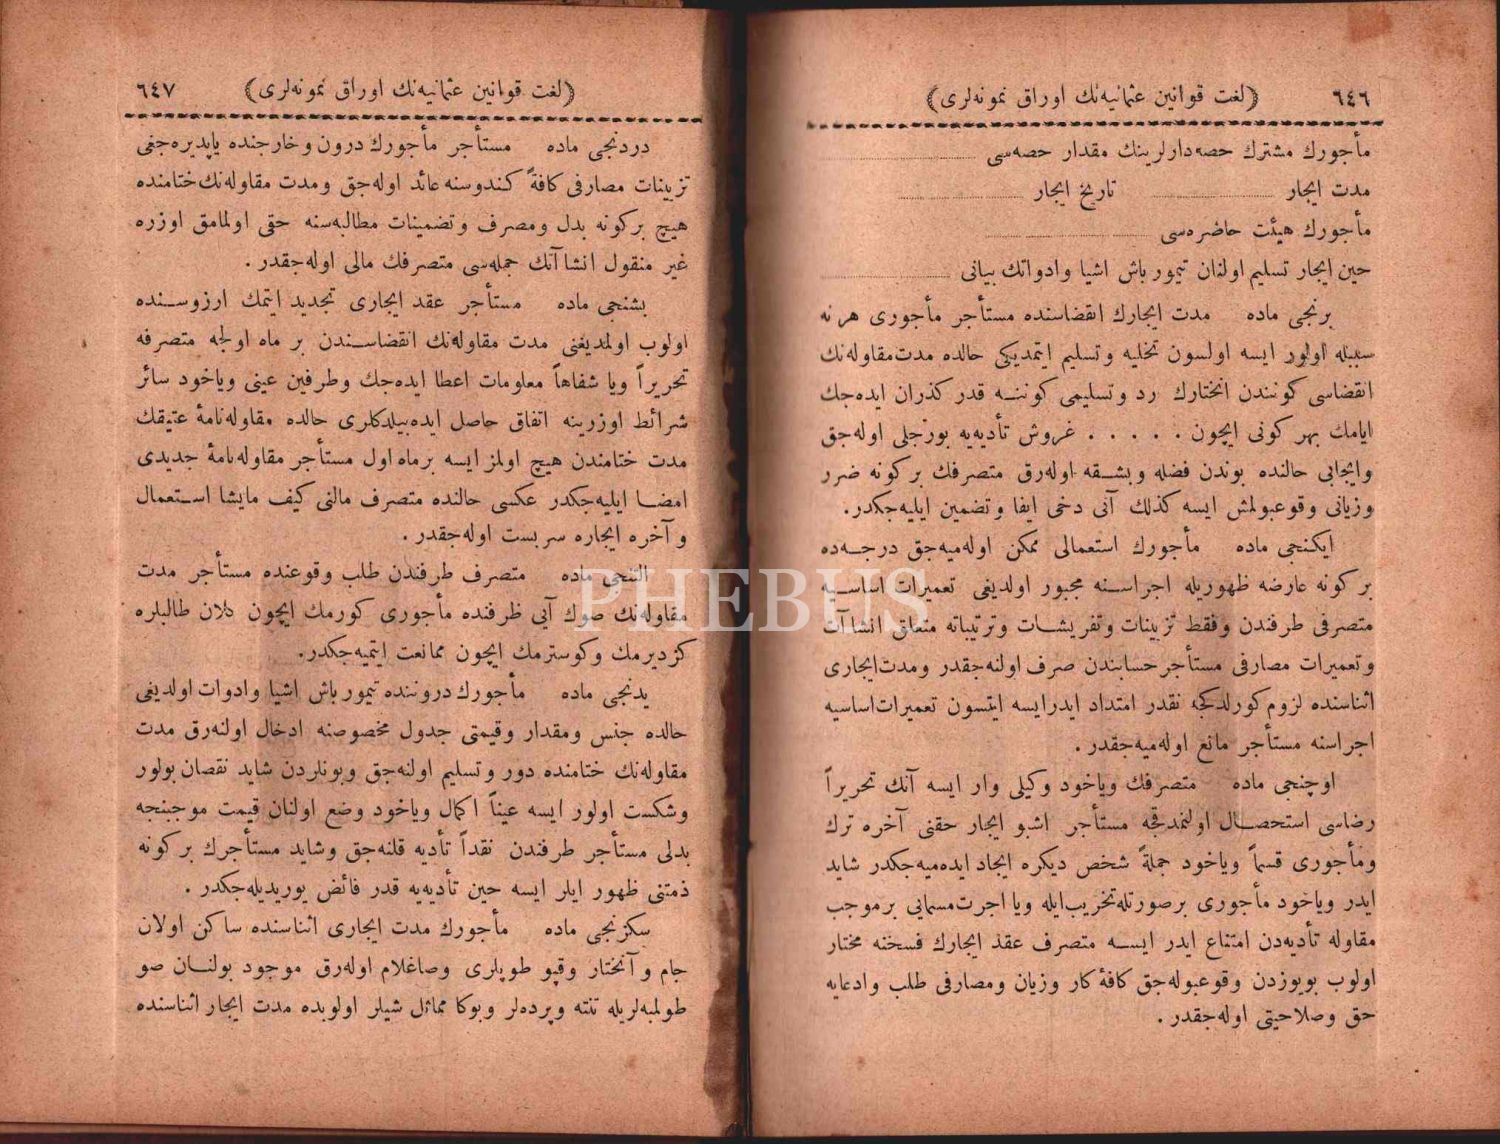 ٦٤٦ ﴿لغت قوانین عثمانیه‌نك اوراق نمونه‌لری﴾
مأجورك مشترك حصه‌دارلرینك مقدار حصه‌سی
مدت ایجار تاریخ ایجار
مأجورك هیئت حاضره‌سی
حین ایجار تسلیم اولنان تیمور باش اشیا وادواتك بیانی
برنجی ماده مدت ایجارك انقضاسنده مستأجر مأجوری هر نه
سببله اولور ایسه اولسون تخلیه وتسلیم ایتمدیكی حالده مدت مقاوله‌نك
انقضاسی كونندن انختارك رد وتسلیمی كوننه قدر كذران ایده‌جك
ایامك بهر كونی ایچون . . . . . غروش تأدیه‌یه بورجلی اوله‌جق
وایجابی حالنده بوندن فضله وبشقه اوله‌رق متصرفك بركونه ضرر
وزیانی وقوعبولمش ایسه كذلك آنی دخی ایفا وتضمین ایلیه‌جكدر.
ایكنجی ماده مأجورك استعمالی ممكن اوله‌میه‌جق درجه‌ده
بركونه عارضه ظهوریله اجراسنه مجبور اولدیغی تعمیرات اساسیه
متصرفی طرفندن وفقط تزیینات وتفریشات وترتیباته متعلق انشاآت
وتعمیرات مصارفی مستأجر حسابندن صرف اولنه‌جقدر ومدت ایجاری
اثناسنده لزوم كورلدكجه نقدر امتداد ایدرایسه ایتسون تعمیرات اساسیه
اجراسنه مستأجر مانع اوله‌میه‌جقدر .
اوچنجی ماده متصرفك ویاخود وكیلی وار ایسه آنك تحریراً
رضاسی استحصال اولنمدقجه مستأجر اشبو ایجار حقنی آخره ترك
ومأجوری قسماً ویاخود جملةً شخص دیكره ایجاد ایده‌میه‌جكدر شاید
ایدر ویاخود مأجوری برصورتله تخریب ایله ویا اجرت مسمانی برموجب
مقاوله تأدیه‌دن امتناع ایدر ایسه متصرف عقد ایجارك فسخنه مختار
اولوب بویوزدن وقوعبوله‌جق كافهٔ كار وزیان ومصارفی طلب وادعایه
حق وصلاحیتی اوله‌جقدر .
﴿لغت قوانین عثمانیه‌نك اوراق نمونه‌لری﴾ ٦٤٧
دردنجی ماده مستأجر مأجورك درون وخارجنده یاپدیره‌جغی
تزیینات مصارفی كافةً كندوسنه عائد اوله‌جق ومدت مقاوله‌نك ختامنده
هیچ بركونه بدل ومصرف وتضمینات مطالبه‌سنه حقی اولمامق اوزره
غیر منقول انشاآتك جمله‌سی متصرفك مالی اوله‌جقدر .
بشنجی ماده مستأجر عقد ایجاری تجدید ایتمك ارزوسنده
اولوب اولمدیغنی مدت مقاوله‌نك انقضاسندن بر ماه اولجه متصرفه
تحریراً ویا شفاهاً معلومات اعطا ایده‌جك وطرفین عینی ویاخود سائر
شرائط اوزرینه اتفاق حاصل ایده‌بیلدكلری حالده مقاوله‌نامهٔ عتیقك
مدت ختامندن هیچ اولمز ایسه برماه اول مستأجر مقاوله‌نامهٔ جدیدی
امضا ایلیه‌جكدر عكسی حالنده متصرف مالنی كیف مایشا استعمال
وآخره ایجاره سربست اوله‌جقدر .
التنجی ماده متصرف طرفندن طلب وقوعنده مستأجر مدت
مقاوله‌نك صوك آیی ظرفنده مأجوری كورمك ایچون كلان طالبلره
كزدیرمك وكوسترمك ایچون ممانعت ایتمیه‌جكدر.
یدنجی ماده مأجورك دروننده تیمور باش اشیا وادوات اولدیغی
حالده جنس ومقدار وقیمتی جدول مخصوصنه ادخال اولنه‌رق مدت
مقاوله‌نك ختامنده دور وتسلیم اولنه‌جق وبونلردن شاید نقصان بولور
وشكست اولور ایسه عیناً اكمال ویاخود وضع اولنان قیمت موجبنجه
بدلی مستأجر طرفندن نقداً تأدیه قلنه‌جق وشاید مستأجرك بركونه
ذمتنی ظهور ایلر ایسه حین تأدیه‌یه قدر فائض یوریدیله‌جكدر .
سكزنجی ماده مأجورك مدت ایجاری اثناسنده ساكن اولان
جام وآنختار وقپو طوپلری وصاغلام اوله‌رق موجود بولنان صو
طولمبه‌لریله تنته وپرده‌لر وبوكا مماثل شیلر اولوبده مدت ایجار اثناسنده
PHEBUS